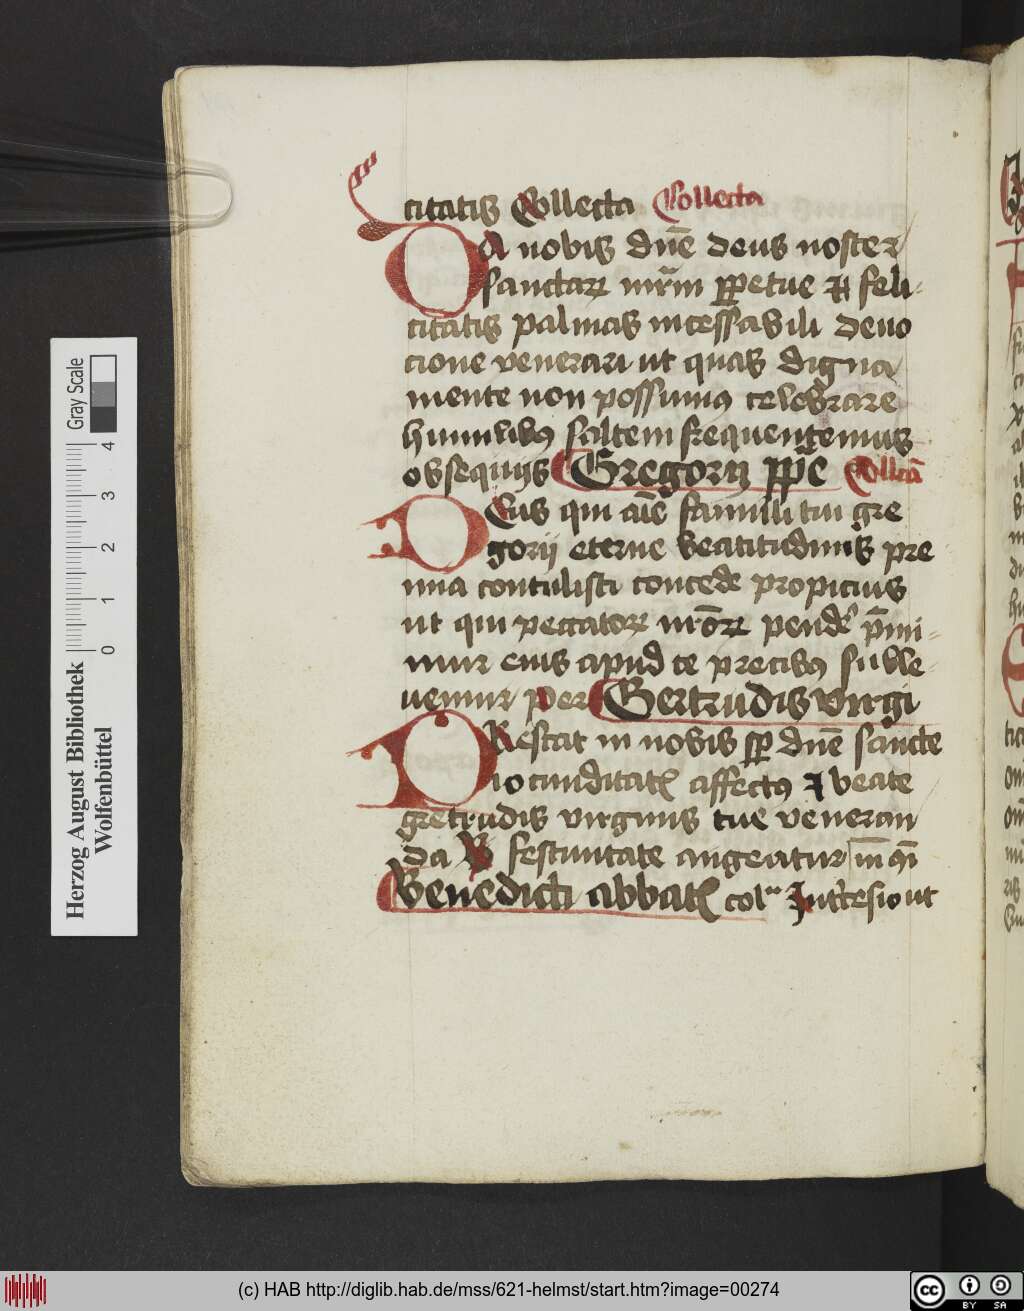 titatis Collecta Collecta
DA nobis dn̄e deus noster
sanctarꝝ mr̄m ꝑpetue ⁊ feli-
citatis palmas incessabili deuo
cione venerari ut quas digna
mente non possumꝰ celebrare
humilibꝰ saltem frequentemus
obsequijs Gregorij pp̄e Collcā
DEus qui aīe famuli tui gre
gorij eterne beatitudinis pre
mia contulisti concede propicius
ut qui peccatorꝝ nr̄orꝝ pondē p̄mi-
mur eius apud te precibꝰ suble-
uemur per Gertrudis virgi
PRestat in nobis sp̄ dn̄e sancte
iocunditatꝭ affectꝰ ⁊ beate
gretrudis virginis tue veneran
da festiuitate augeatur
Benedicti abbatꝭ col Intercesio ut
Herzog August Bibliothek
Wolfenbüttel
0 1 2 3 4
Gray Scale
(c) HAB http://diglib.hab.de/mss/621-helmst/start.htm?image=00274
cc BY SA